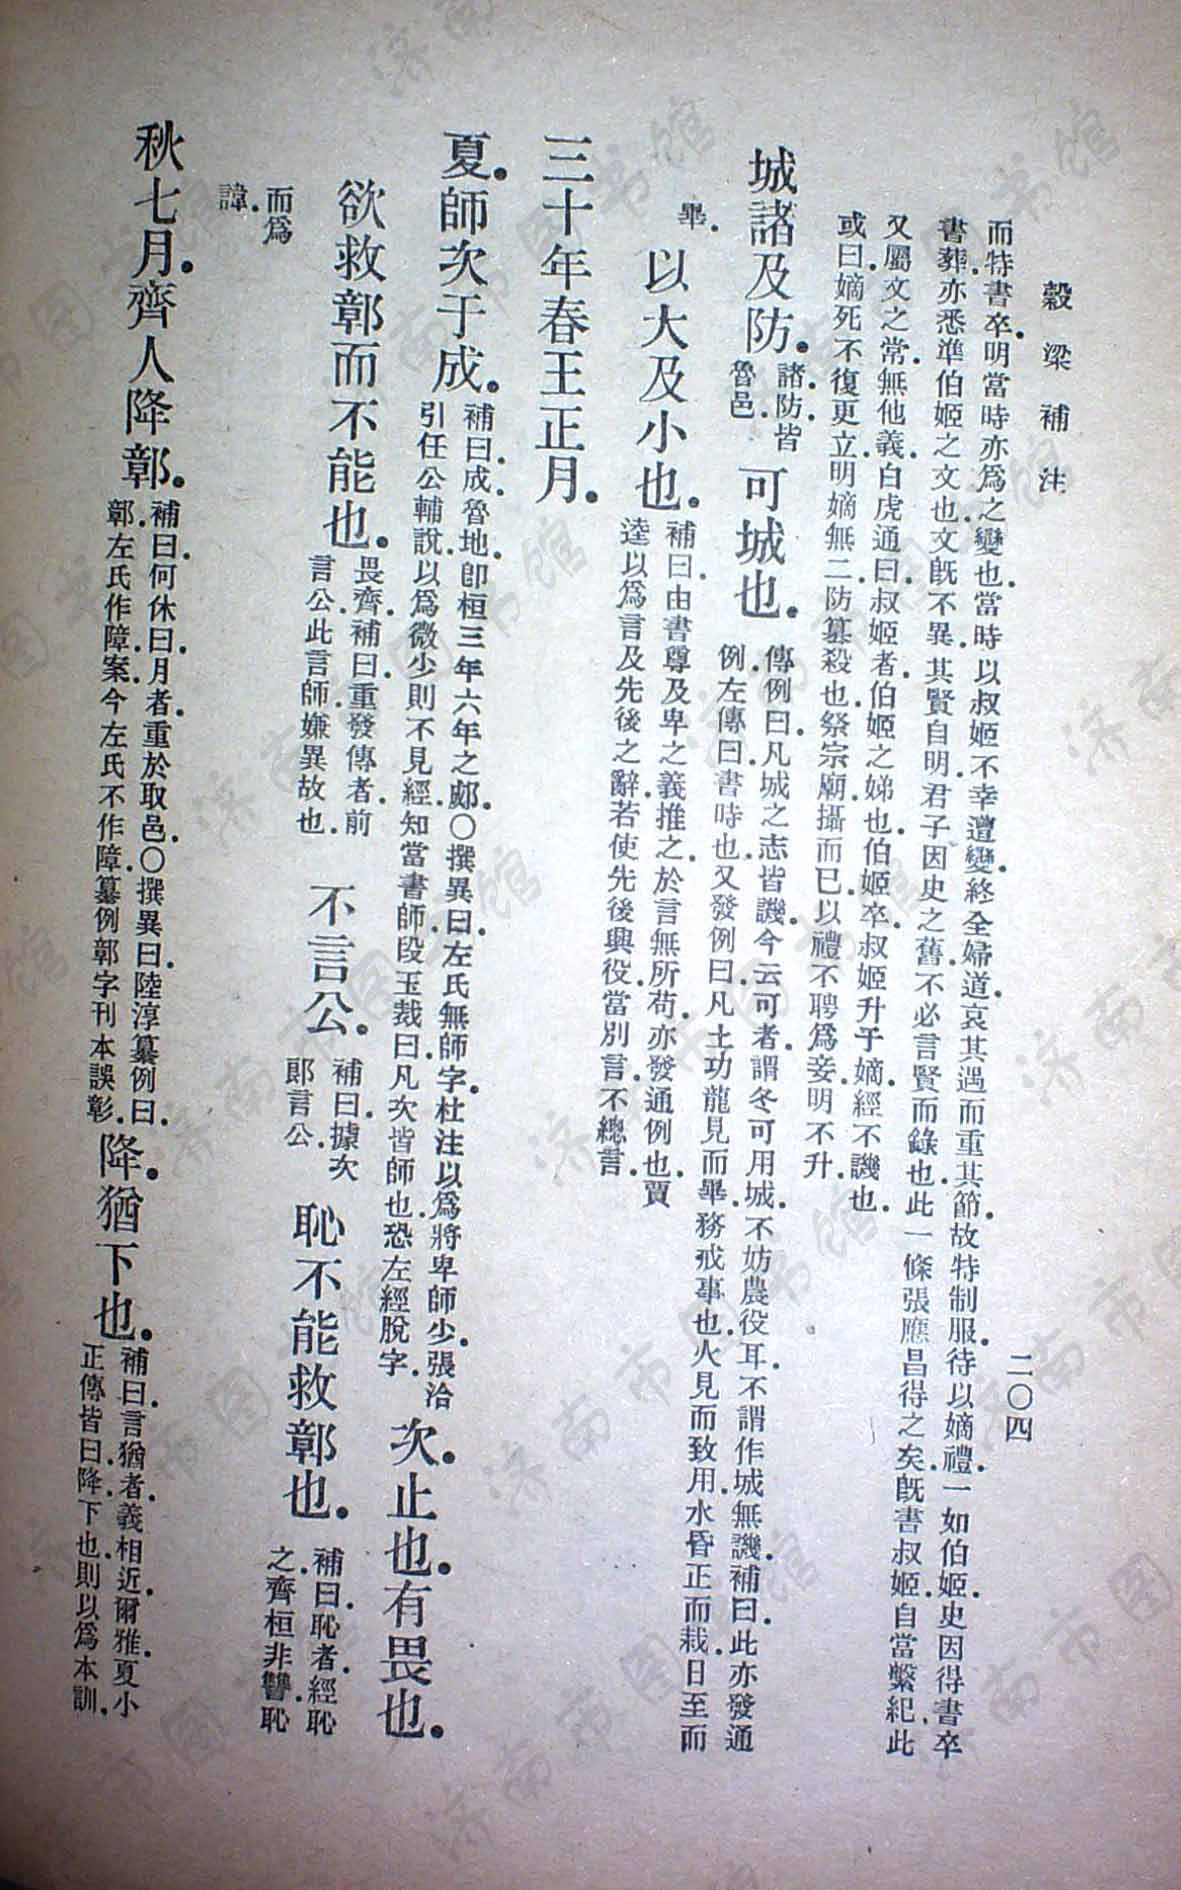 穀梁補注
二〇四
而特書卒.明當時亦爲之變也.當時以叔姬不幸遭變.終全婦道.哀其遇而重其節.故特制服.待以嫡禮.一如伯姬.史因得書卒
書葬.亦悉準伯姬之文也.文旣不異.其賢自明.君子因史之舊.不必言賢而錄也.此一條張應昌得之矣.旣書叔姬.自當繫紀.此
又屬文之常.無他義.白虎通曰.叔姬者.伯姬之娣也.伯姬卒.叔姬升于嫡.經不譏也.
或曰.嫡死不復更立.明嫡無二.防篡殺也.祭宗廟.攝而已.以禮不聘爲妾.明不升.
城諸及防.
諸.防.皆
魯邑.
可城也.
傳例曰.凡城之志皆譏.今云可者.謂冬可用城.不妨農役耳.不謂作城無譏.補曰.此亦發通
例.左傳曰.書時也.又發例曰.凡土功龍見而畢.務戒事也.火見而致用.水昏正而栽.日至而
畢.
以大及小也.
補曰.由書尊及卑之義推之.於言無所苟.亦發通例也.賈
逵以爲言及先後之辭.若使先後興役.當別言.不總言.
三十年春王正月.
夏.師次于成.
補曰.成.魯地.卽桓三年六年之郕.〇撰異曰.左氏無師字.杜注以爲將卑師少.張洽
引任公輔說.以爲微少則不見經.知當書師.段玉裁曰.凡次皆師也.恐左經脫字.
次.止也.有畏也.
欲救鄣而不能也.
畏齊.補曰.重發傳者.前
言公.此言師.嫌異故也.
不言公.
補曰.據次
郎言公.
恥不能救鄣也.
補曰.恥者.經恥
之.齊桓非讐.恥
而爲
諱.
秋七月.齊人降鄣.
補曰.何休曰.月者.重於取邑.〇撰異曰.陸淳纂例曰.
鄣.左氏作障.案今左氏不作障.纂例鄣字刊本誤彰.
降.猶下也.
補曰.言猶者.義相近.爾雅.夏小
正傳皆曰.降.下也.則以爲本訓.